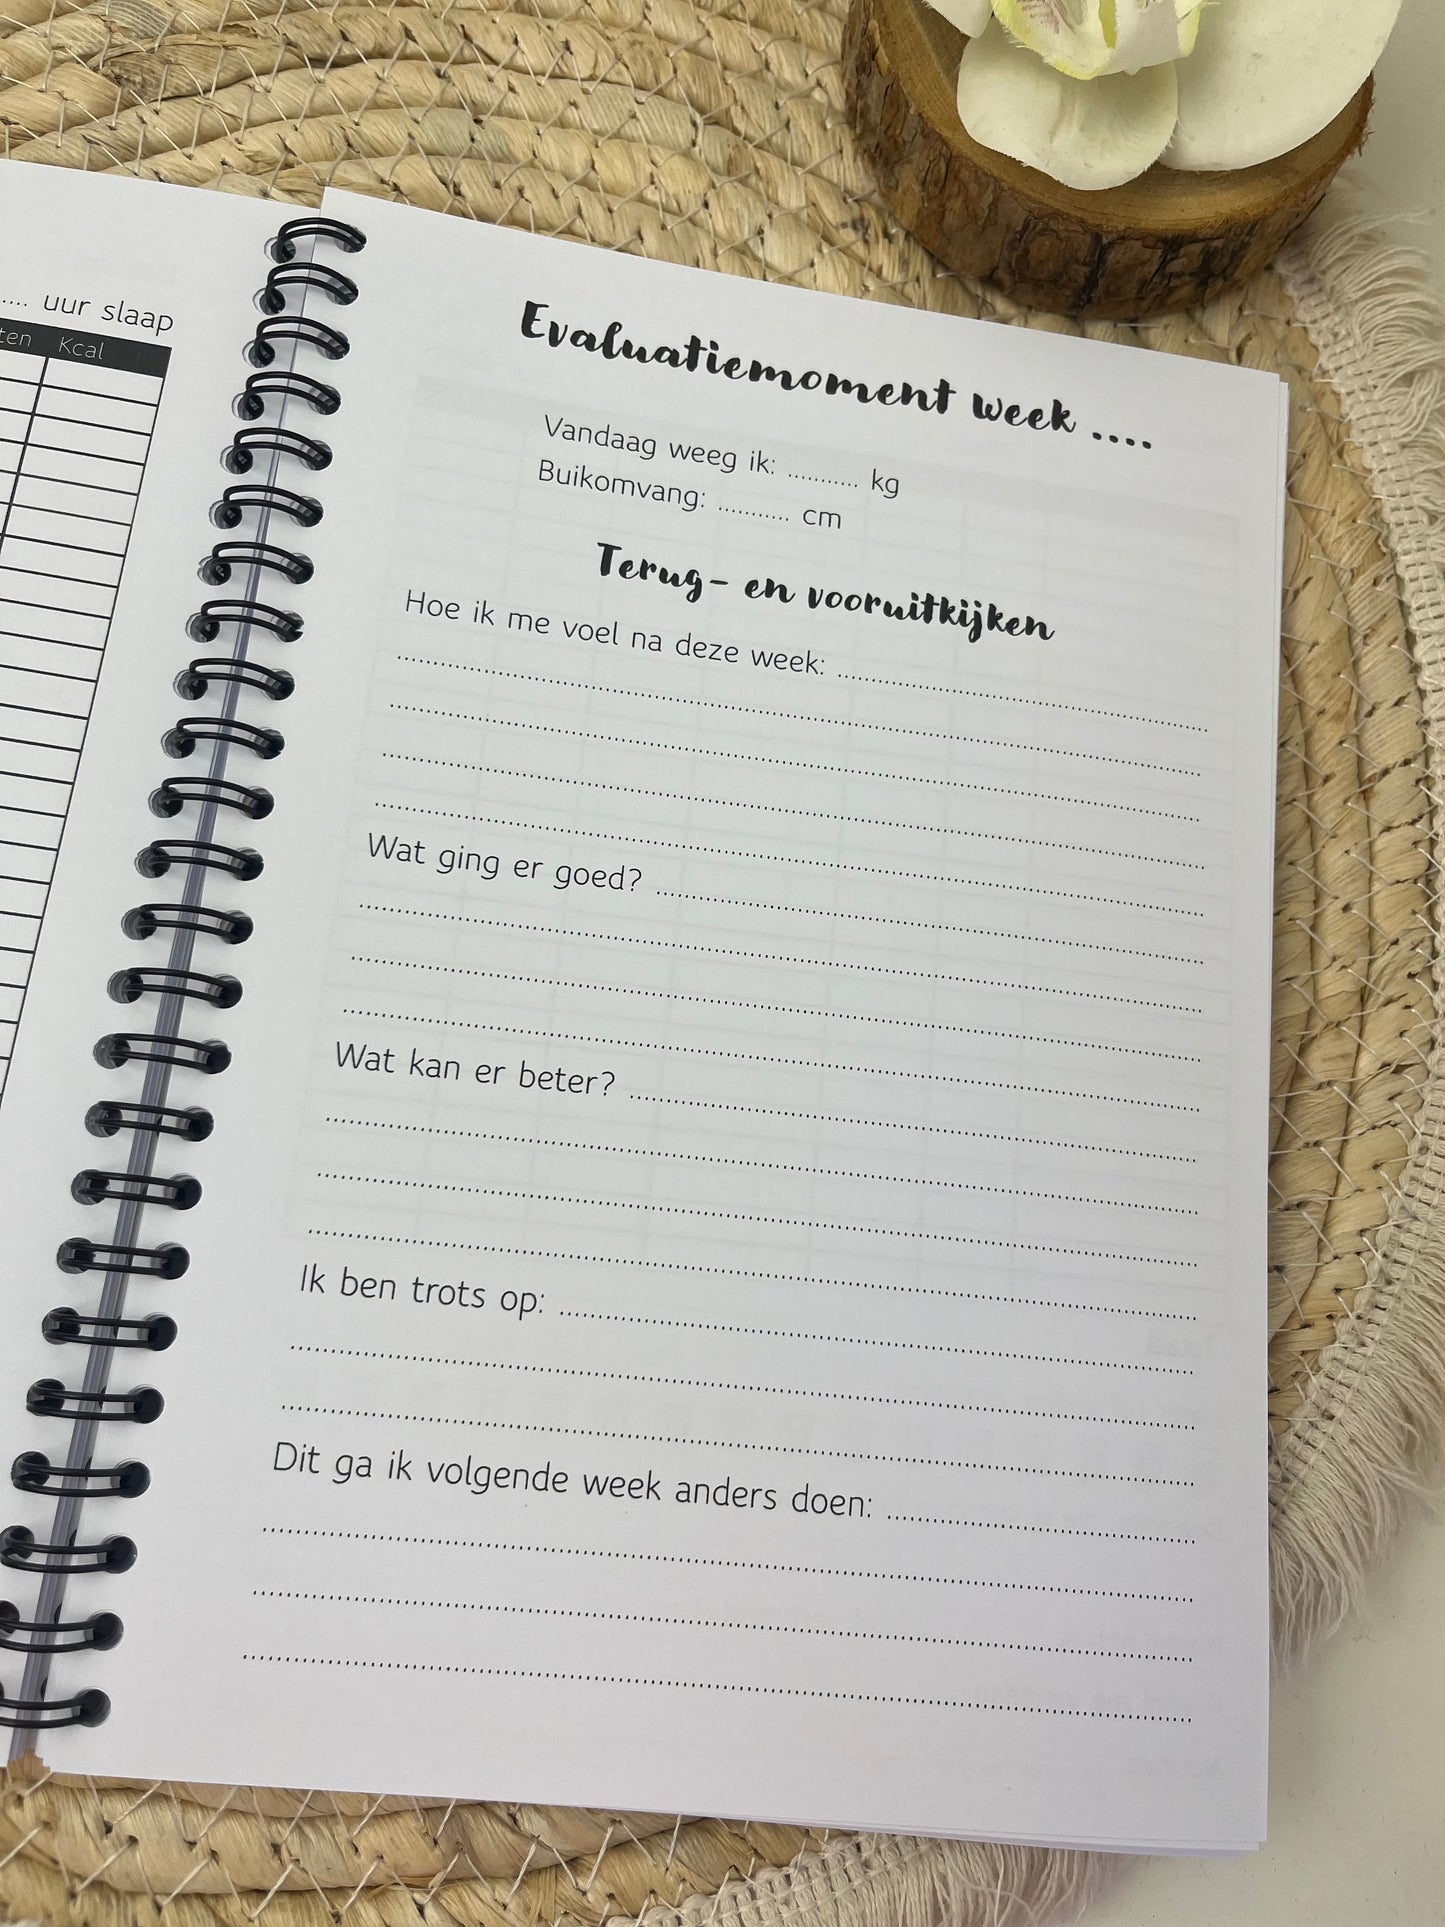 .... uur slaap
ten Kcal
Evaluatiemoment week ....
Vandaag weeg ik: ........... kg
Buikomvang: ........... cm
Terug- en vooruitkijken
Hoe ik me voel na deze week:
Wat ging er goed?
Wat kan er beter?
Ik ben trots op:
Dit ga ik volgende week anders doen: